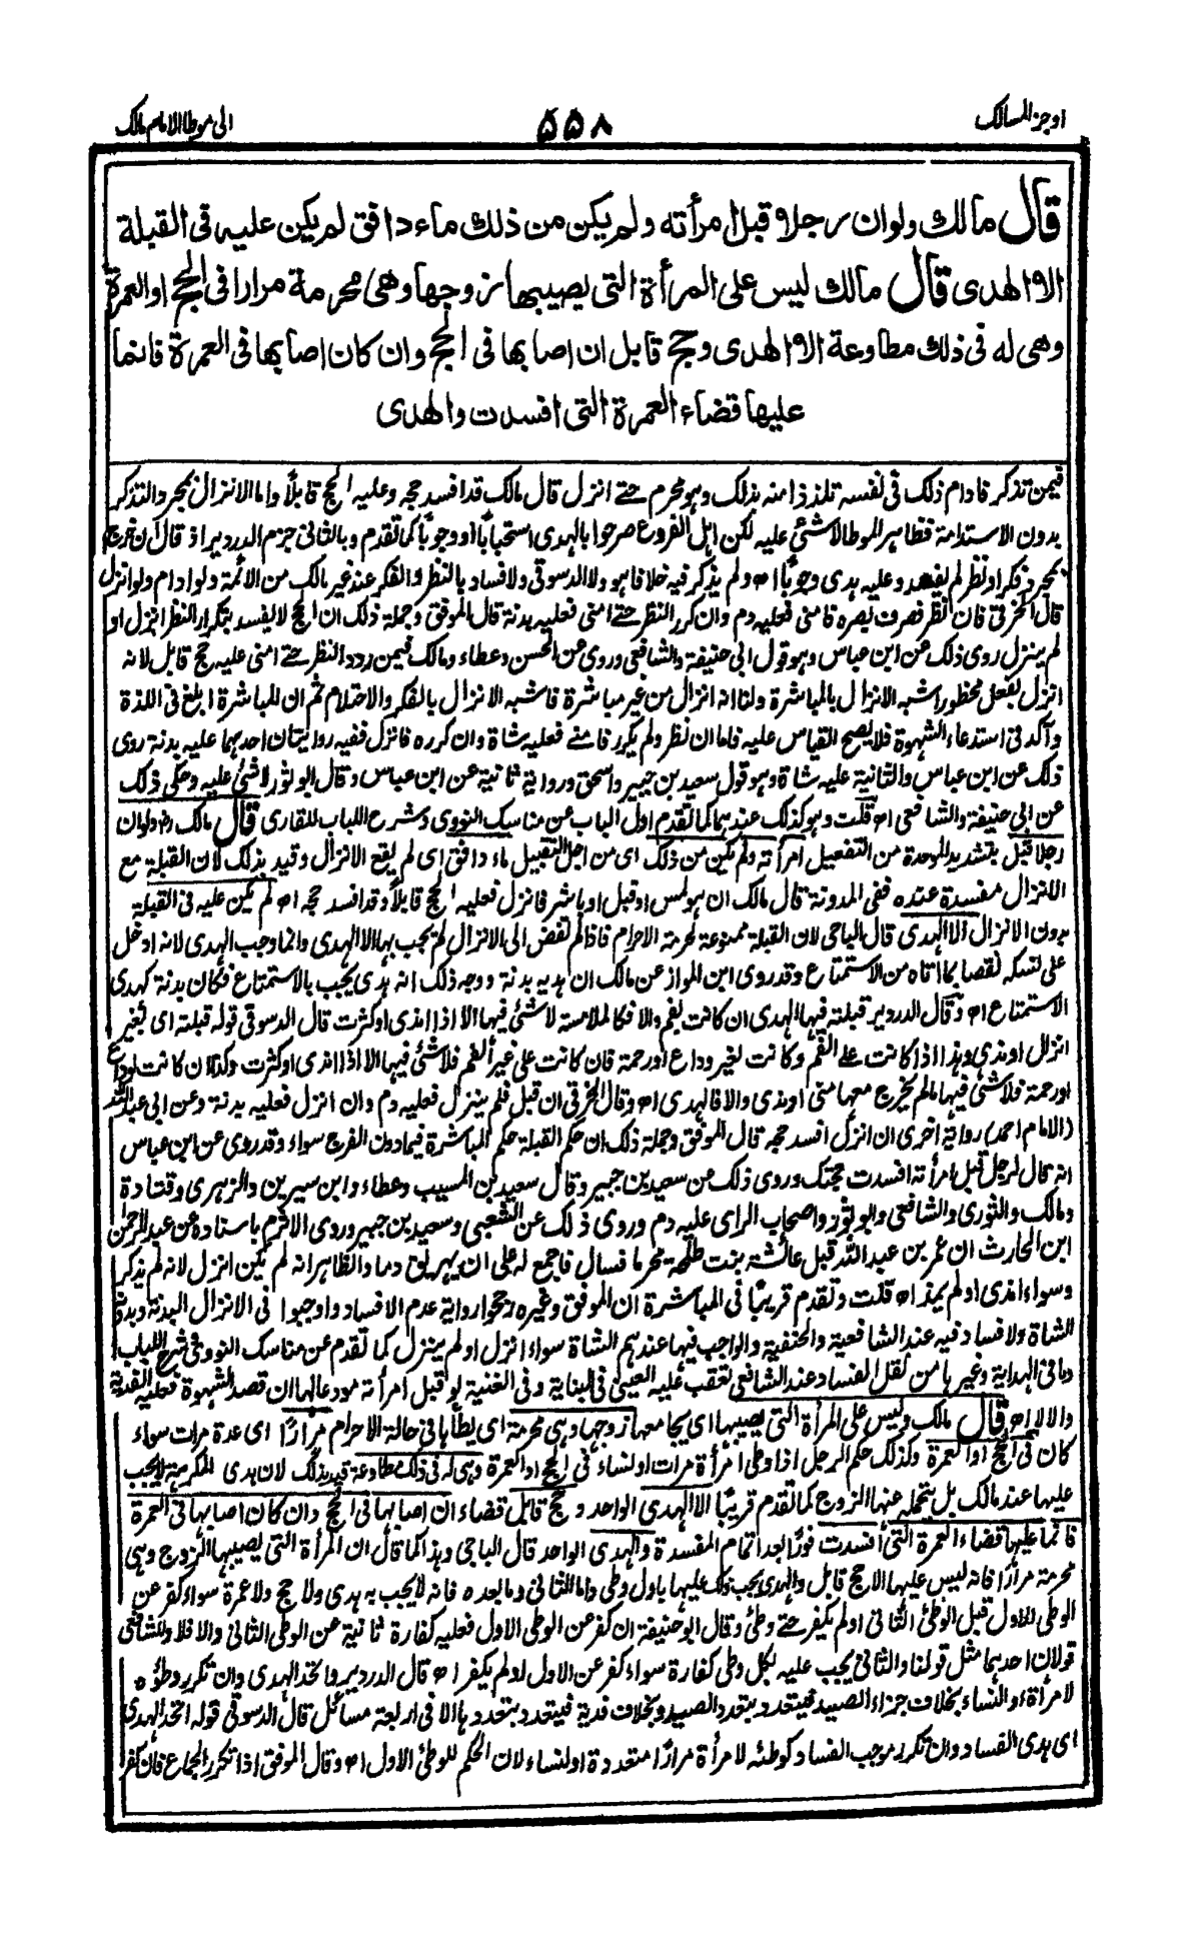 اوجز المسالك
۵۵۸
الى موطا الامام مالك
قال مالك ولو ان رجلا قبل امرأته ولم يكن من ذلك ماء دافق لم يكن عليه فى القبلة
الا الهدى قال مالك ليس على المرأة التى يصيبها زوجها وهى محرمة مرارا فى الحج او العمرة
وهى له فى ذلك مطاوعة الا الهدى وحج قابل ان اصابها فى الحج وان كان اصابها فى العمرة فانما
عليها قضاء العمرة التى افسدت والهدى
فيمن تذكر فادام ذلك فى نفسه تلذذا منه بذلك وهو محرم حتے انزل قال مالك قد افسد حجه وعليه الحج قابلًا واما الانزال بمجرد التذكر
بدون الاستدامة فظاهر الموطا لاشئ عليه لكن اهل الفروع صرحوا بالهدى استحبابًا او وجوبًا كما تقدم وبالثانى جزم الدردير اذ قال ان خرج
بمجرد فكر او نظر لم يفسد وعليه هدى وجوبًا اھ ولم يذكر فيه خلافا هو ولا الدسوقى ولا فساد بالنظر والفكر عند غير مالك من الائمة ولو ادام ولو انزل
قال الخرقى فان نظر فصرف بصره فامنى فعليه دم وان كرر النظر حتے امنى فعليه بدنة قال الموفق وجملة ذلك ان الحج لا يفسد بتكرار النظر انزل او
لم ينزل روى ذلك عن ابن عباس وهو قول ابى حنيفة والشافعى وروى عن الحسن وعطاء ومالك فيمن ردد النظر حتے امنى عليه حج قابل لانه
انزل بفعل محظور اشبه الانزال بالمباشرة ولنا انه انزال من غير مباشرة فاشبه الانزال بالفكر والاحتلام ثم ان المباشرة ابلغ فى اللذة
وآكد فى استدعاء الشهوة فلا يصح القياس عليه فاما ان نظر ولم يكرر فامنے فعليه شاة وان كرره فانزل ففيه روايتان احدهما عليه بدنة روى
ذلك عن ابن عباس والثانية عليه شاة وهو قول سعيد بن جبير واسحق ورواية ثانية عن ابن عباس وقال ابو ثور لا شئ عليه وحكى ذلك
عن ابى حنيفة والشافعى اھ قلت وهو كذلك عندهما كما تقدم اول الباب عن مناسك النووى وشرح اللباب للقارى قال مالك رہ ولو ان
رجلا قبل بتشديد الموحدة من التفعيل امرأته ولم يكن من ذلك اى من اجل التقبيل ماء دافق اى لم يقع الانزال وقيد بذلك لان القبلة مع
الانزال مفسدة عنده ففى المدونة قال مالك ان هو لمس او قبل او باشر فانزل فعليه الحج قابلًا وقد افسد حجه اھ لم يكن عليه فى القبلة
بدون الانزال الا الهدى قال الباجى لان القبلة ممنوعة لحرمة الاحرام فاذا لم تفض الى الانزال لم يجب بها الا الهدى وانما وجب الهدى لانه ادخل
على نسكه نقصا بما اتاه من الاستمتاع وقد روى ابن المواز عن مالك ان هديه بدنة ووجه ذلك انه هدى يجب بالاستمتاع فكان بدنة كهدى
الاستمتاع اھ وقال الدردير قبلته فيها الهدى ان كانت بفم والا فكالملامسة لا شئ فيها الا اذا امذى او كثرت قال الدسوقى قوله قبلته اى بغير
انزال او مذى وهذا اذا كانت على الفم وكانت لغير وداع او رحمة فان كانت على غير الفم فلا شئ فيها الا اذا امذى او كثرت وكذا ان كانت لوداع
او رحمة فلا شئ فيها ما لم يخرج معها منى او مذى والا فالهدى اھ وقال الخرقى ان قبل فلم ينزل فعليه دم وان انزل فعليه بدنة وعن ابى عبد الله
(الامام احمد) رواية اخرى ان انزل افسد حجه قال الموفق وجملة ذلك ان حكم القبلة حكم المباشرة فيما دون الفرج سواء وقد روى عن ابن عباس
انه قال لرجل قبل امرأته افسدت حجتك وروى ذلك عن سعيد بن جبير وقال سعيد بن المسيب وعطاء وابن سيرين والزهرى وقتادة
ومالك والثورى والشافعى وابو ثور واصحاب الراى عليه دم وروى ذلك عن الشعبى وسعيد بن جبير وروى الاثرم باسناده عن عبد الرحمن
ابن الحارث ان عمر بن عبد الله قبل عائشة بنت طلحة محرما فسال فاجمع له على ان يهريق دما والظاهر انه لم يكن انزل لانه لم يذكر
وسواء امذى او لم يمذ اھ قلت وتقدم قريبًا فى المباشرة ان الموفق وغيره رجحوا رواية عدم الافساد واوجبوا فى الانزال البدنة وبدونه
الشاة ولا فساد فيه عند الشافعية والحنفية والواجب فيها عندهم الشاة سواء انزل او لم ينزل كما تقدم عن مناسك النووى وشرح اللباب
وما فى الهداية وغيرها من نقل الفساد عند الشافعى تعقب عليه العينى فى البناية وفى الغنية لو قبل امرأته مودعا لها ان قصد الشهوة فعليه الفدية
والا لا اھ قال مالك وليس على المرأة التى يصيبها اى يجامعها زوجها وهى محرمة اى يطأها فى حالة الاحرام مرارًا اى عدة مرات سواء
كان فى الحج او العمرة وكذلك حكم الرجل اذا وطى امرأة مرات او نساء فى الحج او العمرة وهى له فى ذلك مطاوعة قيد بذلك لان هدى المكرهة لا يجب
عليها عند مالك بل يتحمله عنها الزوج كما تقدم قريبًا الا الهدى الواحد وحج قابل قضاء ان اصابها فى الحج وان كان اصابها فى العمرة
فانما عليها قضاء العمرة التى افسدت فورًا بعد اتمام المفسدة والهدى الواحد قال الباجى وهذا كما قال ان المرأة التى يصيبها الزوج وهى
محرمة مرارًا فانه ليس عليها الا حج قابل والهدى يجب ذلك عليها باول وطى واما الثانى وما بعده فانه لا يجب به هدى ولا حج ولا عمرة سواء كفر عن
الوطى الاول قبل الوطئ الثانى او لم يكفر حتے وطئ وقال ابو حنيفة ان كفر عن الوطى الاول فعليه كفارة ثانية عن الوطى الثانى والا فلا وللشافعى
قولان احدهما مثل قولنا والثانى يجب عليه لكل وطى كفارة سواء كفر عن الاول او لم يكفر اھ قال الدردير واتحد الهدى وان تكرر وطؤه
لامرأة او النساء بخلاف جزاء الصيد فيتعدد بتعدد الصيد وبخلاف فدية فيتعدد بتعددها الا فى اربعة مسائل قال الدسوقى قوله اتحد الهدى
اى هدى الفساد وان تكرر موجب الفساد كوطئه لامرأة مرارًا متعددة او لنساء لان الحكم للوطئ الاول اھ وقال الموفق اذا تكرر الجماع فان كفر